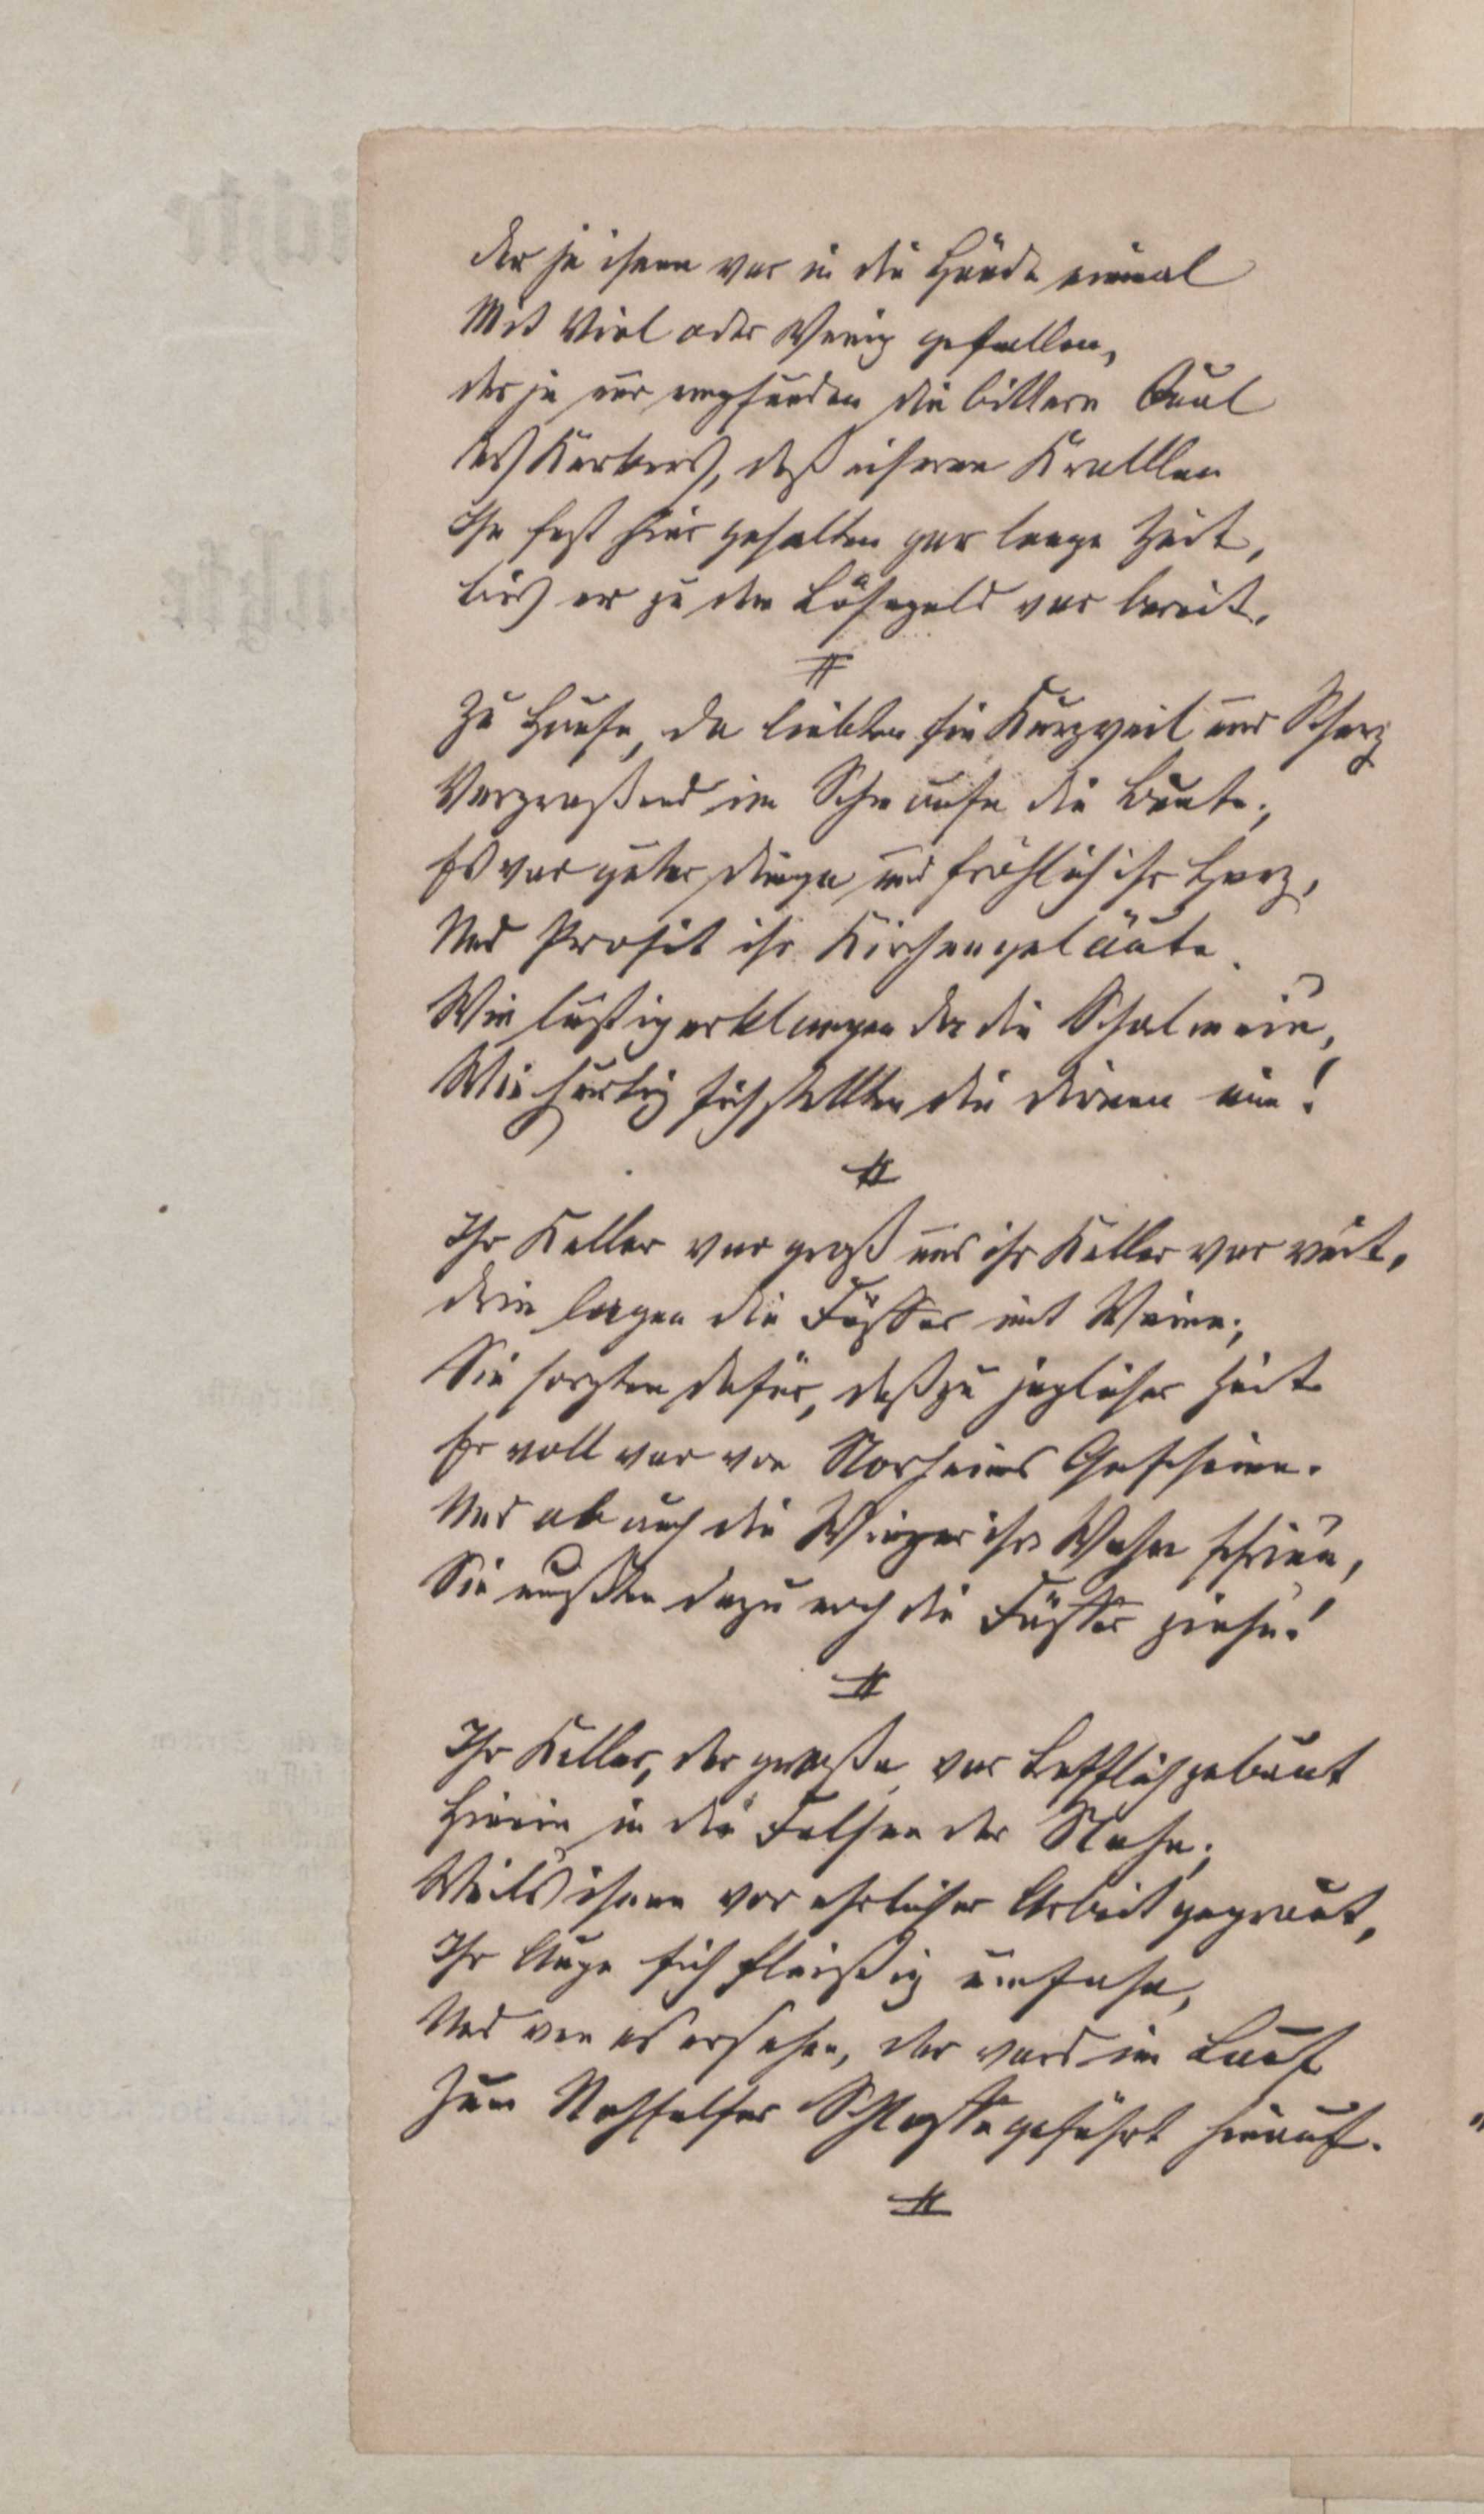 Der je ihnen war in die Hände einmal
Mit Viel oder Wenig gefallen,
Der je nur empfunden die bittere Qual
Des Kerkers, deß eiserne Krallen
Ihn fest hier gehalten gar lange Zeit,
bis er zu dem Lösegeld war bereit.
#
Zu Hause, da liebten sie Kurzweil und Scherz
Verprassend im Schmause die Beute;
Es war guter Dinge und fröhlich ihr Herz,
Und Prosit ihr Kirchengeläute.
Wie lustig erklangen da die Schalmein,
Wie hurtig sich stellten die Dirnen ein!
#
Ihr Keller war groß und ihr Keller war weit,
Drin lagen die Fässer mit Weine;
Sie sorgten dafür, daß zu jeglicher Zeit
Er voll war von Norheims Gescheine.
Und ob auch die Winzer ihr Wehe schrien,
Sie mußten dazu noch die Fässer ziehn!
#
Ihr Keller, der große, war trefflich gebaut
Hinein in die Felsen der Nahe;
Weil's ihnen vor ehrlicher Arbeit gegraut,
Ihr Auge sich fleißig umsahe,
Und wen es ersehen, der ward im Lauf
Zum Rothfelser Schlosse geführt hinauf.
#